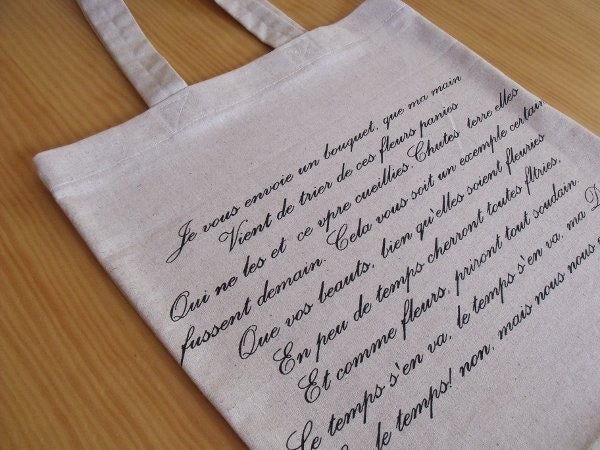 Je vous envoie un bouquet, que ma main
Vient de trier de ces fleurs panies
Qui ne les et ce vpre cueillies.Chutes terre elles
fussent demain. Cela vous soit un exemple certain
Que vos beauts, bien qu'elles soient fleuries
En peu de temps cherront toutes fltries,
Et comme fleurs, priront tout soudain.
Le temps s'en va, le temps s'en va, ma D
le temps! non, mais nous nous